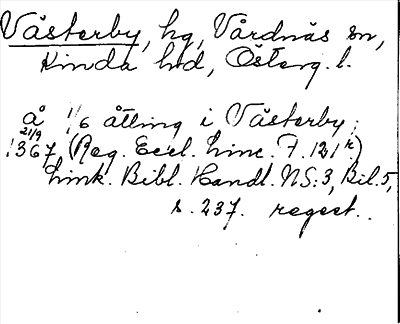 Västerby, hg, Vårdnäs sn,
Kinda hd, Österg. l.
å 1/6 åtting i Västerby;
21/9
1367 (Reg. Eccl. Linc. F. 121 r)
Link. Bibl. Handl. NS:3, Bil. 5,
s. 237. regest..